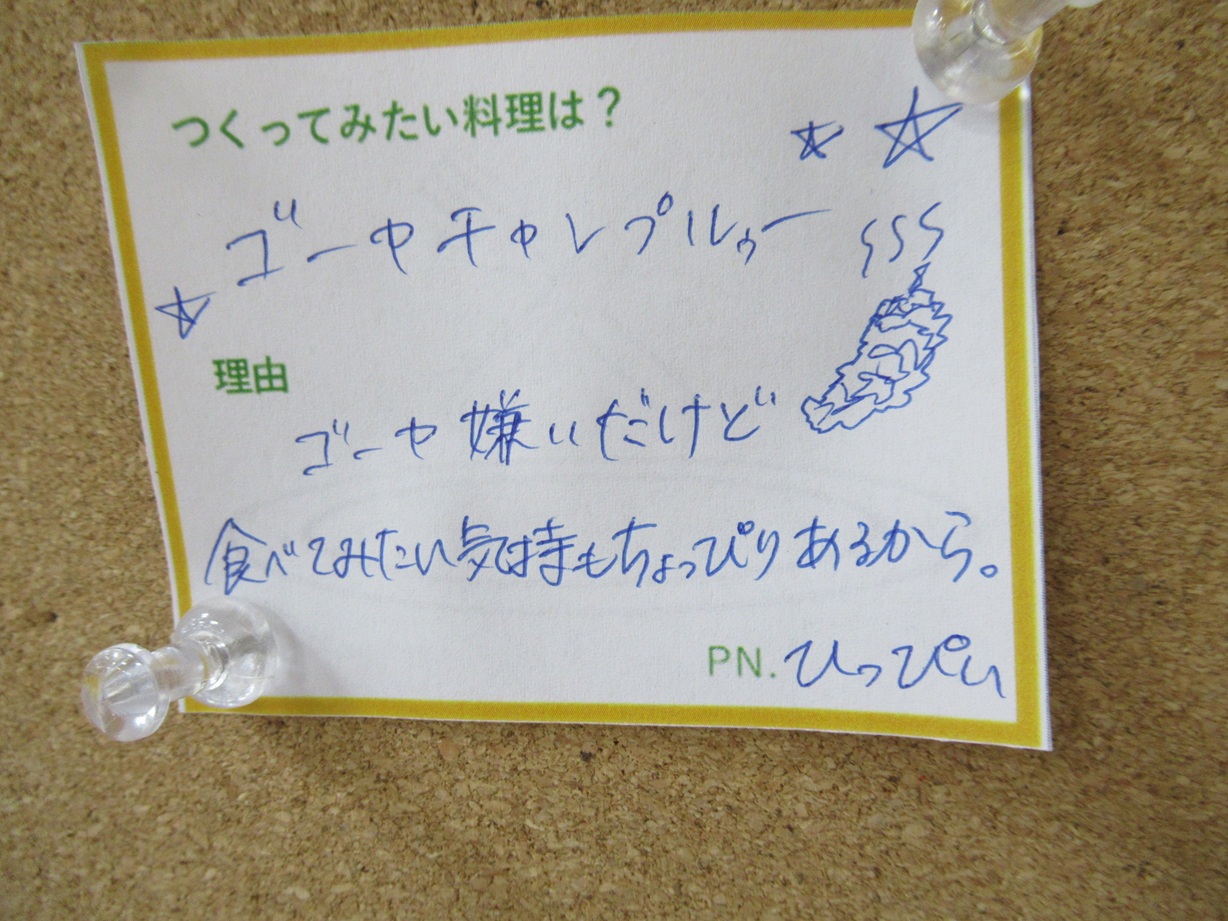 つくってみたい料理は？
ゴーヤチャンプルゥー
理由
ゴーヤ嫌いだけど
食べてみたい気持もちょっぴりあるから。
PN.ひっぴぃ